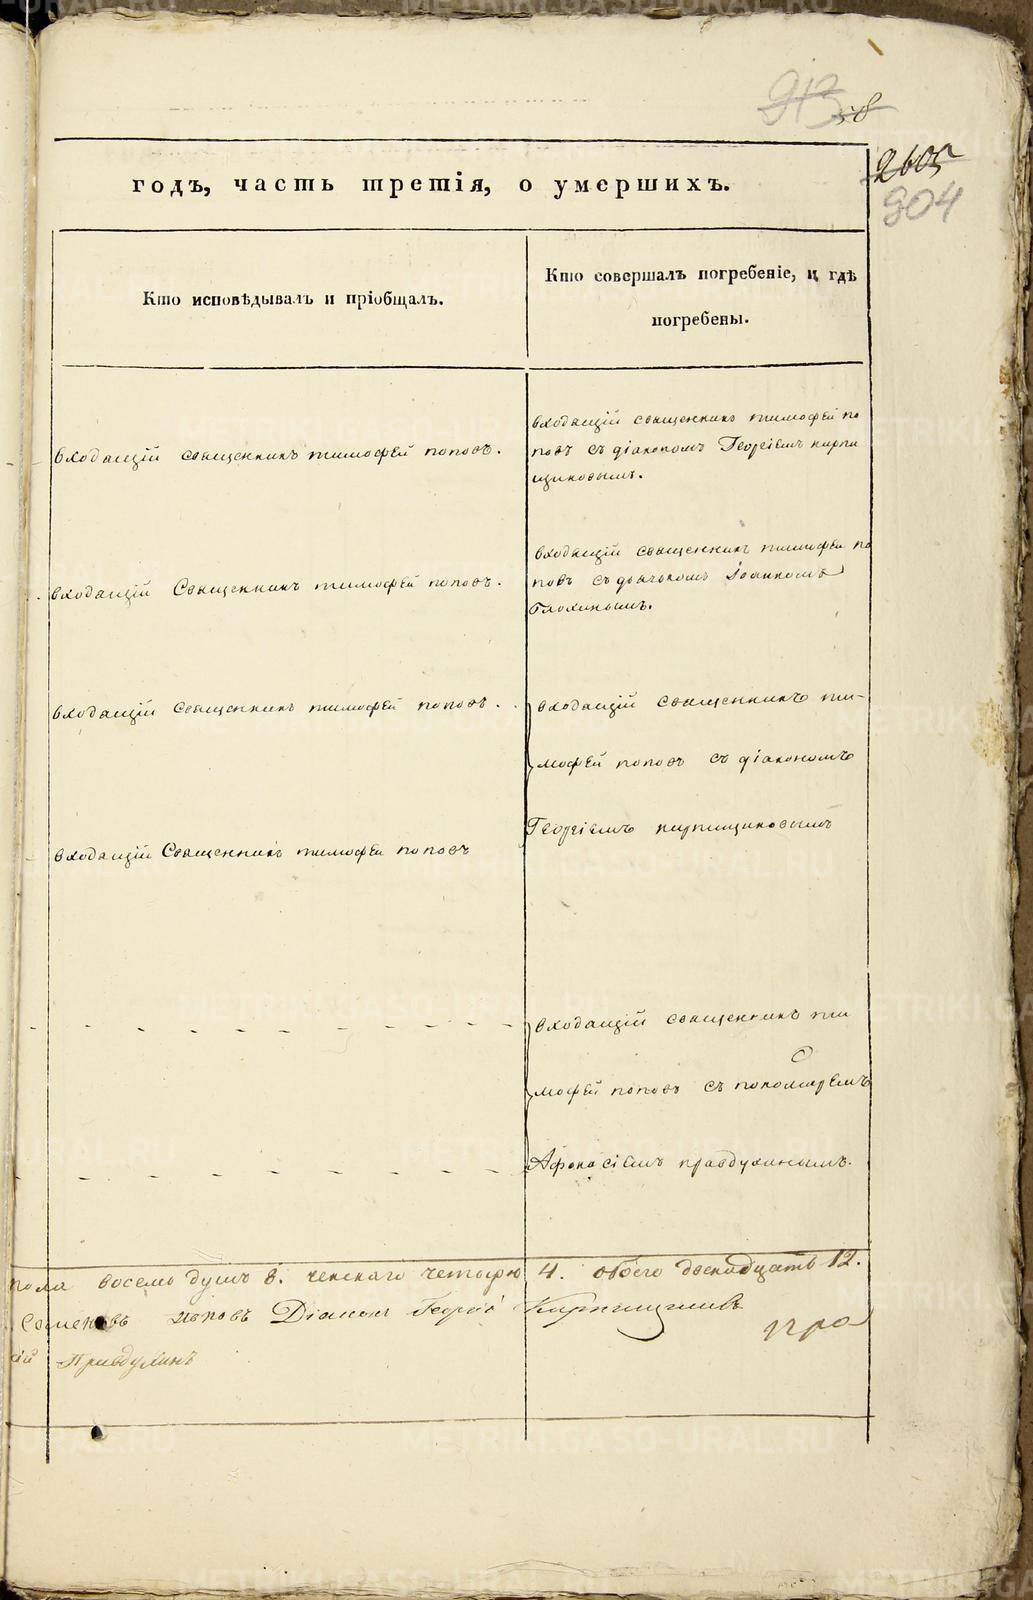 213
58
2605
904
годъ, часть третія, о умершихъ.
Кто исповѣдывалъ и пріобщалъ.
Кто совершалъ погребеніе, и гдѣ
погребены.
входащій священникъ тимофей поповъ.
входащій священникъ тимофей по
повъ съ діакономъ Георгіемъ кирпи
щиковымъ.
входащій Священникъ тимофей поповъ.
входащій священникъ тимофей по
повъ съ дьячькомъ Іоанномъ
входащій священникъ тимофей поповъ.
входащій священникъ ти-
мофей поповъ съ діакономъ
Георгіемъ кирпищиковымъ
входащій Священникъ тимофей поповъ
входащій священникъ ти
мофей поповъ съ пономаремъ
Афонасіемъ правдухинымъ.
пола восемь душъ 8. женскаго четыре 4. обоего двенадцать 12.
Поповъ Діаконъ Георгій Кирпищиковъ
пра
кій Правдухинъ
METRIKI.GASO-URAL.RU